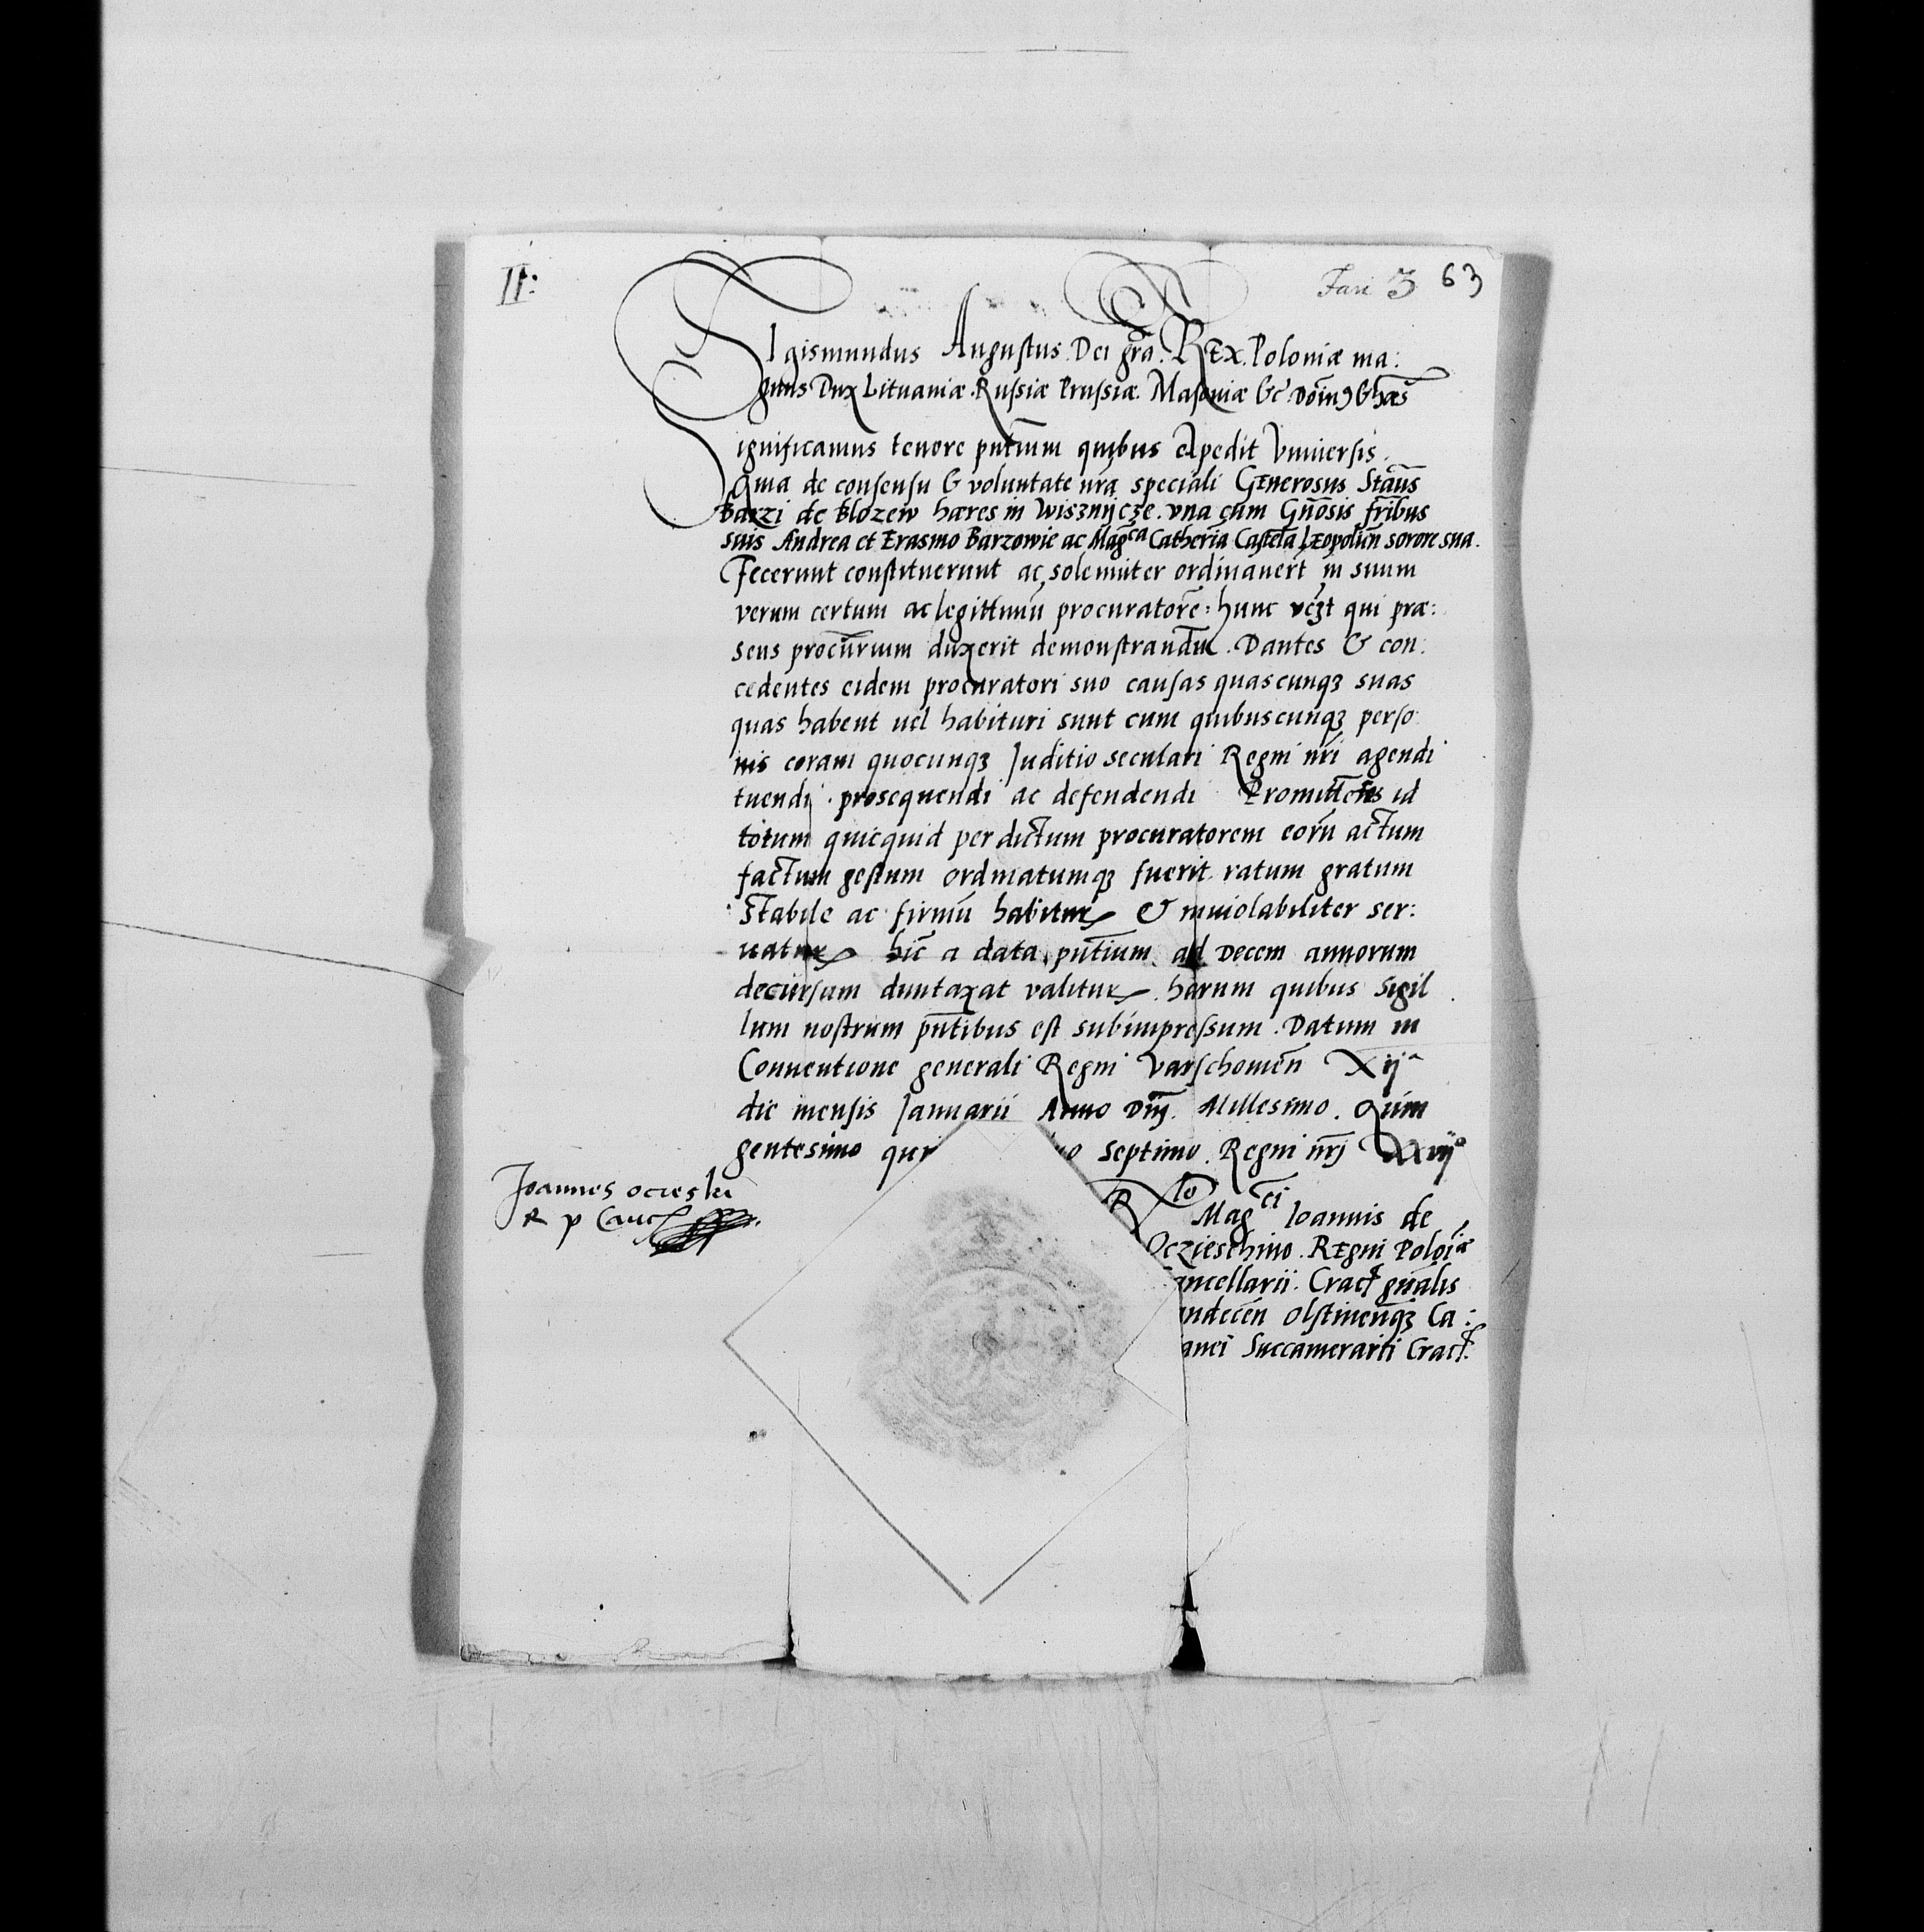 II:
Fasc 3 63
SIgismundus Augustus Dei grã. REX. Poloniæ ma:
gnus Dux Lituaniæ. Russiæ Prussiæ. Masouiæ &c Doîn9 & hæs
Significamus tenore pñtium quibus expedit Vniuersis.
Quia de consensu & voluntate nrã speciali GEnerosus Stãus
Barzi de Blozew hæres in Wisznijcze. vna cum Gñosis frĩbus
suis Andrea et Erasmo Barzowie ac Mag^ca Catheriã Castela LEopolieñ sorore sua.
Fecerunt constituerunt ac solemniter ordinauert̃ in suum
verum certum ac legittimũ procuratorẽ: hunc vczt qui præ:
sens procũrium duxerit demonstrandũ. Dantes & con:
cedentes eidem procuratori suo causas quascunqꝫ suas
quas habent uel habituri sunt cum quibuscunqꝫ perso
nis coram quocunqꝫ Juditio seculari Regni nrĩ agendi
tuendi. prosequendi ac defendendi Promittentes id
totum quicquid per dictum procuratorem eorũ actum
factum gestum ordinatumqꝫ fuerit ratum gratum
stabile ac firmũ habitur & inuiolabiliter ser:
uatur hic̃ a data pñtium ad Decem annorum
decursum duntaxat valitur. harum quibus Sigil
lum nostrum pñtibus est subimpressum. Datum in
Conuentione generali Regni Varschouieñ Xij^a
die mensis Januarii Anno Dñj. Millesimo. Quin
gentesimo qui o septimo. Regni nrĩ XXvij°
Joannes ocieski
R p Canc
R^lo Mag^ci Ioannis de
Oczieschino. REgni Polõiæ
ancellarii. Crac gñalis
ndeceñ Olstineñqꝫ Ca:
anei Succamerarii Crac